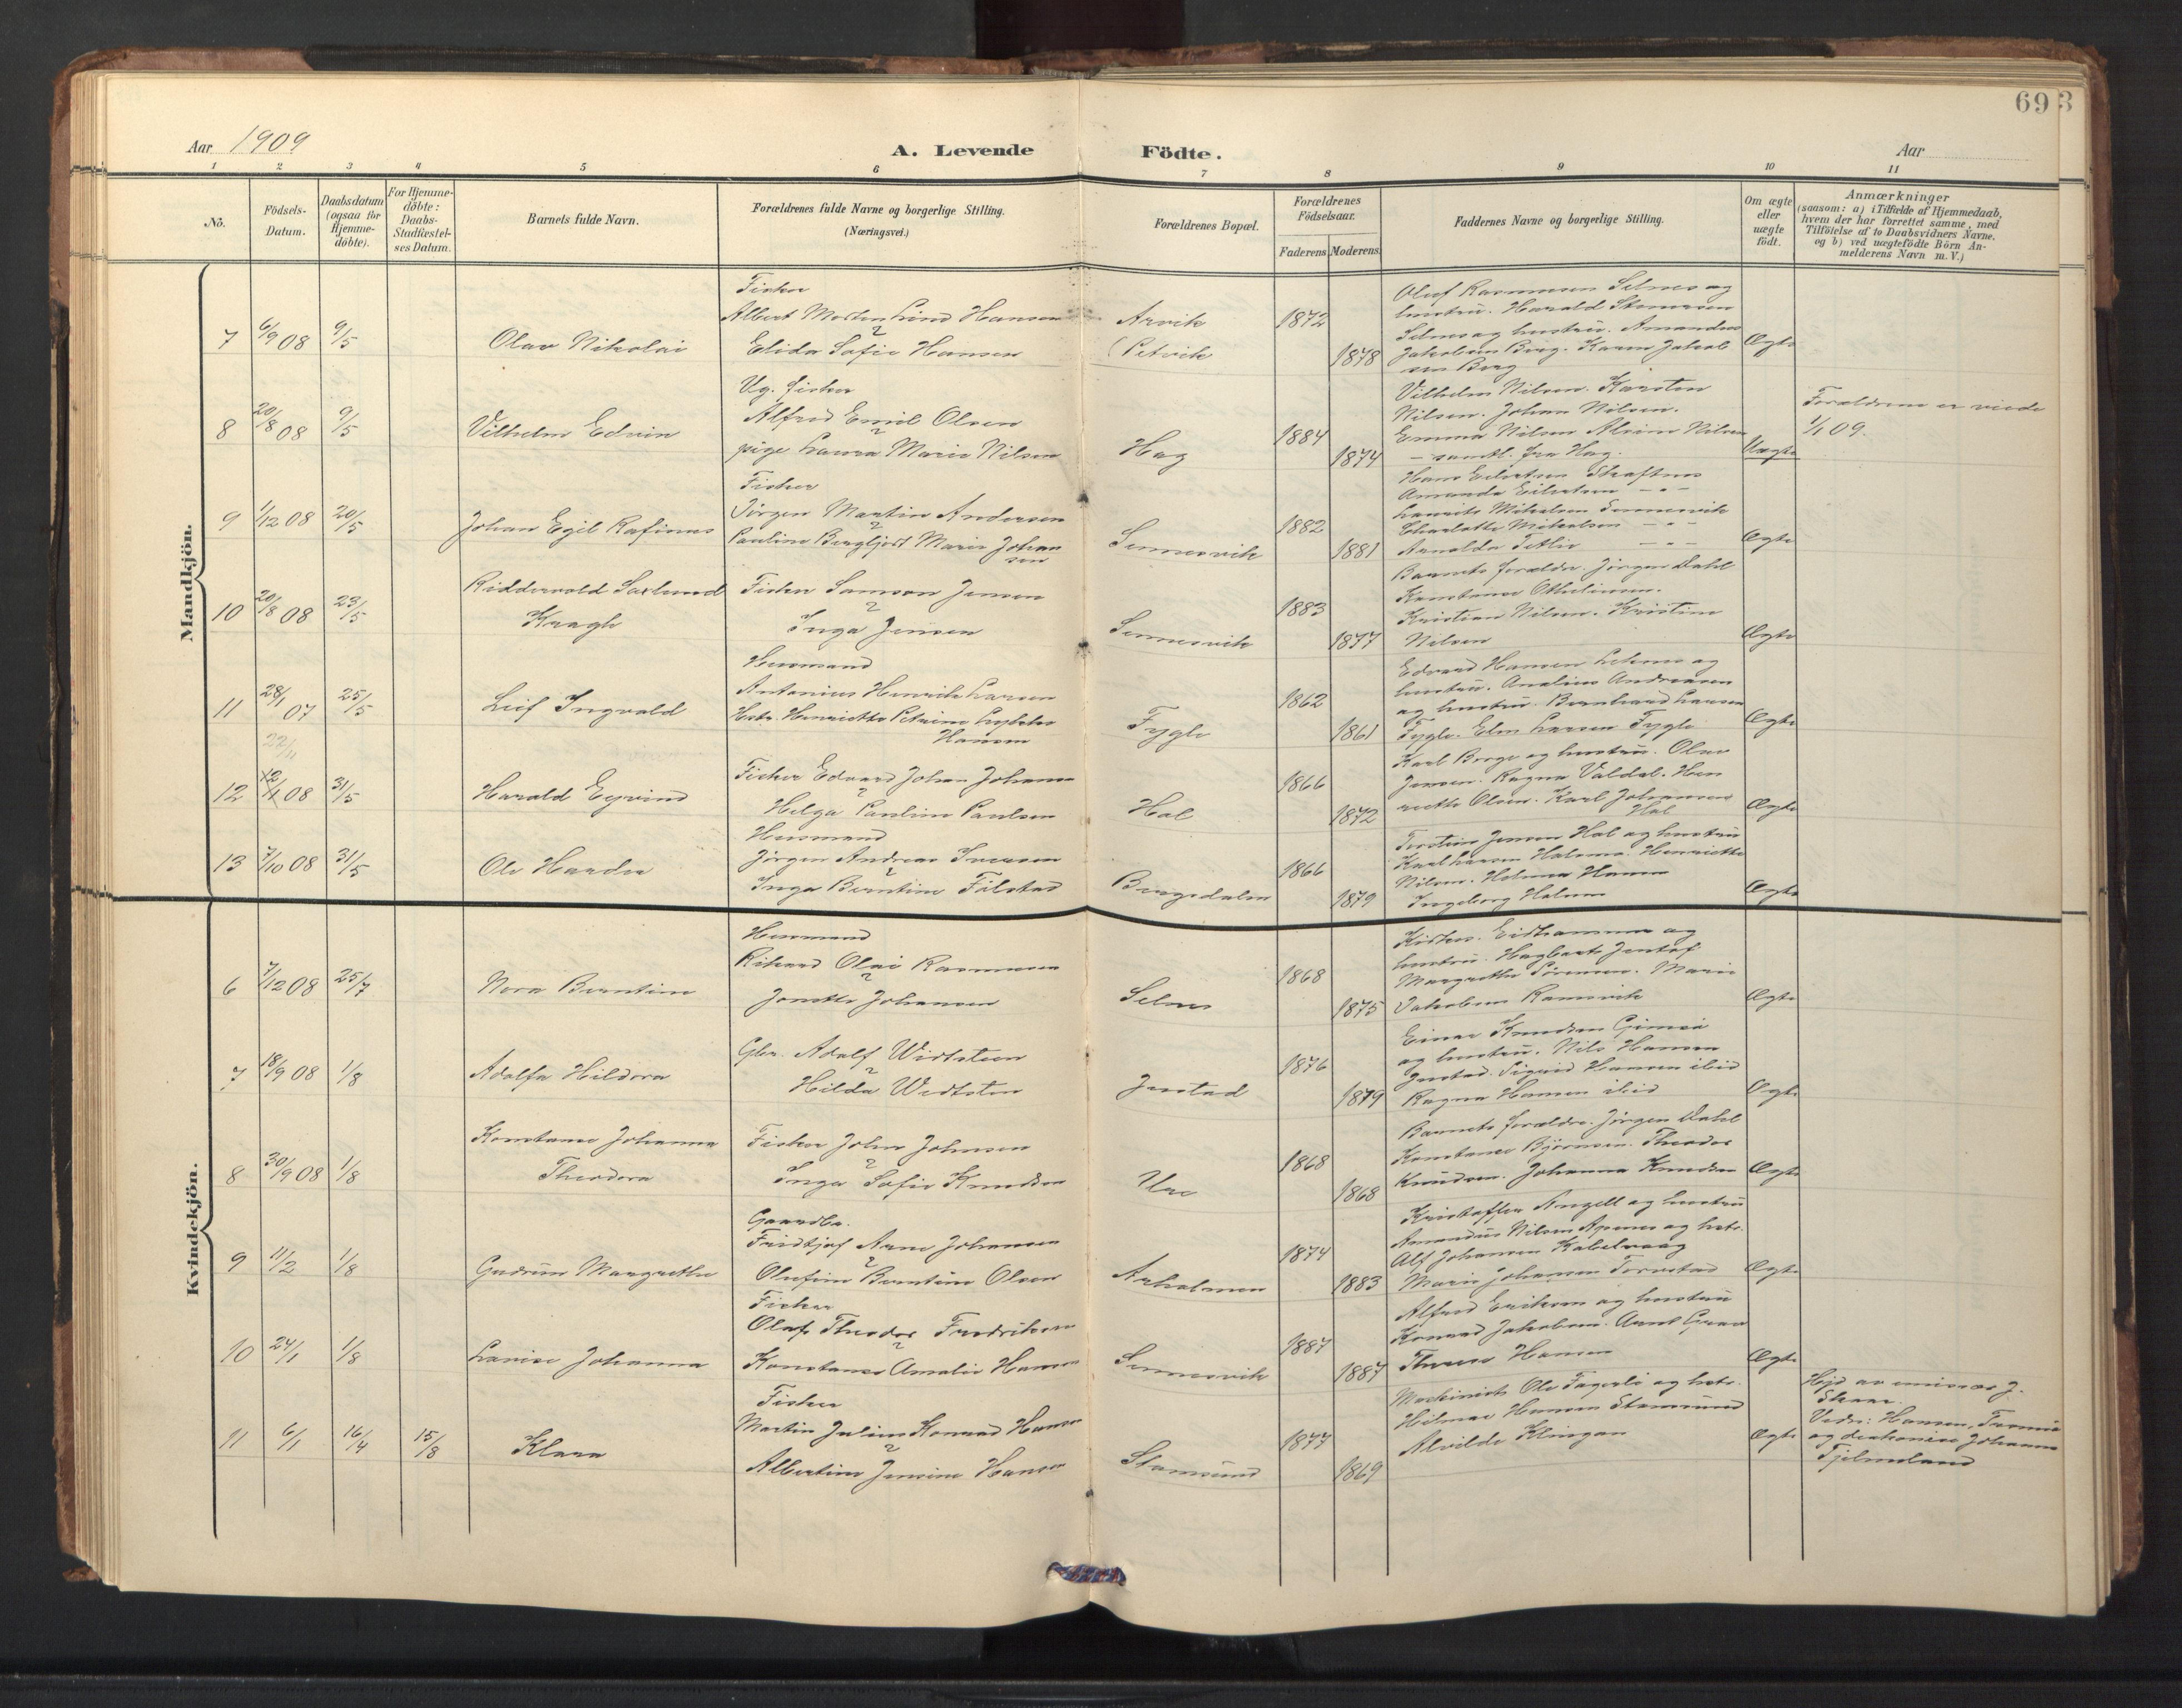 69 3
Aar 1909
A. Levende Födte.
Aar
1 2 3 4 5 6 7 8 9 10 11
No.
Födsels-Datum.
Daabsdatum (ogsaa for Hjemme-döbte).
For Hjemme-döbte: Daabs-Stadfæstel-ses Datum.
Barnets fulde Navn.
Forældrenes fulde Navne og borgerlige Stilling.
(Næringsvei.)
Forældrenes Bopæl.
Forældrenes Födselsaar.
Faderens Moderens
Faddernes Navne og borgerlige Stilling.
Om ægte eller uægte födt.
Anmærkninger
(saasom: a) i Tilfælde af Hjemmedaab, hvem der har forrettet samme, med Tilföielse af to Daabsvidners Navne, og b) ved uægtefödte Börn An-melderens Navn m. V.)
Mandkjön.
7 6/9 08 9/5 Olav Nikolai
Fisker
Albert Morten Lind Hansen
Elida Sofie Hansen
Arvik
(Petvik
1872
1878
Oluf Rasmussen Selnes og
hustru. Harald Stenersen
Selnes og hustru. Amandus
Jakobsen Berg. Karen Jakob
sen Berg
Ægte
8 20/8 08 9/5 Vilhelm Edvin
Ug. fisker
Alfred Emil Olsen
pige Laura Marie Nilsen
Hag
1884
1874
Vilhelm Nilsen. Karsten
Nilsen. Johan Nilsen.
Emma Nilsen Alvine Nilsen
– samtl. fra Hag.
Uægte
Forældrene er viede
1/1 09.
9 1/12 08 20/5 Johan Egil Rafinus
Fisker
Jörgen Martin Andersen
Pauline Bergljot Marie Johan
sen
Sennesvik
1882
1881
Hans Eilertsen Skaftnes
Amanda Eilertsen – " –
Laurits Mikalsen Sennesvik
Charlotte Mikalsen – " –
Arnolda Tetlie – " –
Ægte
10 20/8 08 23/5 Riddervold Saxlund
Kragh
Fisker Samson Jensen
Inga Jensen
Sennesvik
1883
1877
Barnets forældre. Jörgen Dahl
Konstanse Othiliusen.
Kristian Nilsen. Kristine
Nilsen
Ægte
11 28/1 07 25/5 Leif Ingvald
Husmand
Antonius Henrik Larsen
Hstr. Henriette Petrine
Hansen
Fygle
1862
1861
Edvard Hansen Leknes og
hustru. Analius Andreasen
og hustru. Bernhard Larsen
Fygle. Elen Larsen Fygle
Ægte
22/11
12 12/11 08 31/5 Harald Eyvind
Fisker Edvard Johan Johansen
Helga Pauline Paulsen
Hol
1866
1872
Karl Borge og hustru. Olav
Jensen. Ragna Valdal. Hen
riette Olsen. Karl Johansen
Hol
Ægte
13 7/10 08 31/5 Ole Haarder
Husmand
Jörgen Andreas Iversen
Inga Berntine Fölstad
Bergsdalen
1866
1879
Torstein Jensen Hol og hustru
Karl Larsen Holsmo. Henriette
Nilsen. Helmer Hansen
Ingeborg Holsmo
Ægte
Kvindekjön.
6 7/12 08 25/7 Nora Berntine
Husmand
Rikard Olai Rasmussen
Jonette Johansen
Selnes
1868
1875
Kirkes. Eidhammer og
hustru. Hagbart Justof
Margrethe Sörensen. Marie
Jakobsen Ramsvik
Ægte
7 18/9 08 1/8 Adolfa Hildora
Gbr. Adolf Widsteen
Hilda Widsten
Justad
1876
1879
Einar Knudsen Gimsö
og hustru. Nils Hansen
Justad. Sigurd Hansen ibid
Ragna Hansen ibid
Ægte
8 30/9 08 1/8 Konstanse Johanna
Theodora
Fisker John Johnsen
Inga Sofie Knudsen
Ure
1868
1868
Barnets forældre. Jörgen Dahl
Konstanse Björnsen. Theodor
Knudsen. Johanna Knudsen
Ægte
9 11/2 1/8 Gudrun Margrethe
Gaardbr.
Fridtjof Arne Johansen
Olufine Berntine Olsen
Axholmen
1874
1883
Kristoffer Angell og hustru
Amandus Nilsen Apenes og hstr.
Alf Johansen Kabelvaag
Marie Johansen Torvstad
Ægte
10 24/1 1/8 Lovise Johanna
Fisker
Olaf Theodor Fredriksen
Konstanse Amalie Hansen
Sennesvik
1887
1887
Alfred Eriksen og hustru
Konrad Jakobsen.
Therese Hansen
Ægte
11 6/1 16/4 15/8 Klara
Fisker
Martin Julius Konrad Hansen
Albertine Jensine Hansen
Stamsund
1877
1869
Maskinist Ole Fagerli og hstr.
Hilmar Hansen Stamsund
Alvilde Klingan
Ægte
Hjd av emissær J.
Skaar.
Vidn: Hansen, Tromsö
og diakonisse Johanna
Fjelmeland